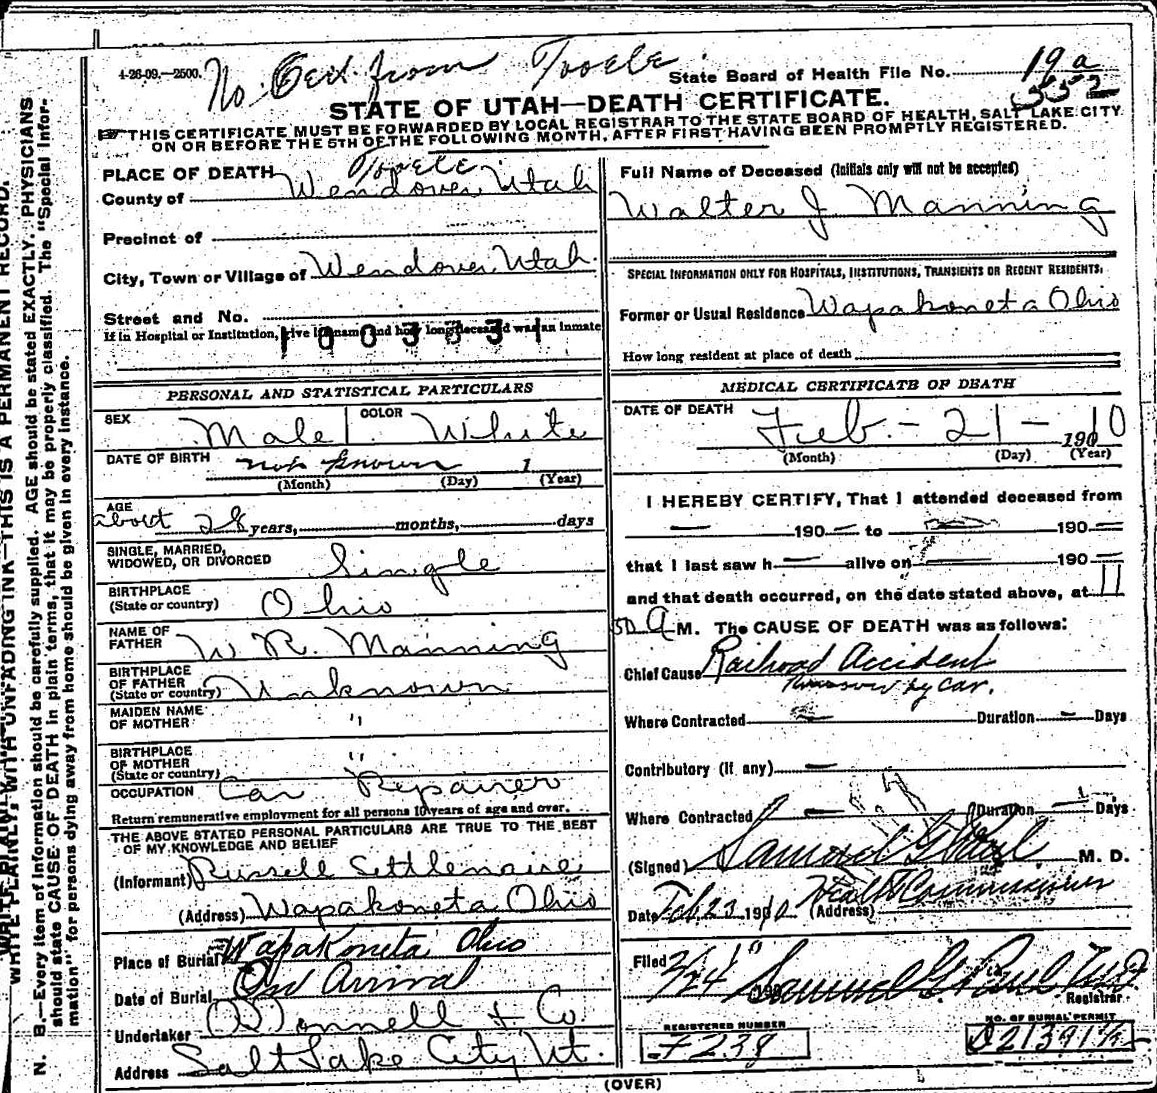 4-26-09.—2500.
No Cert from Tooele
State Board of Health File No. 19a
552
STATE OF UTAH—DEATH CERTIFICATE.
THIS CERTIFICATE MUST BE FORWARDED BY LOCAL REGISTRAR TO THE STATE BOARD OF HEALTH, SALT LAKE CITY
ON OR BEFORE THE 5TH OF THE FOLLOWING MONTH, AFTER FIRST HAVING BEEN PROMPTLY REGISTERED.
WRITE PLAINLY, WITH UNFADING INK—THIS IS A PERMANENT RECORD.
N. B.—Every item of information should be carefully supplied. AGE should be stated EXACTLY. PHYSICIANS
should state CAUSE OF DEATH in plain terms, that it may be properly classified. The "Special Infor-
mation" for persons dying away from home should be given in every instance.
PLACE OF DEATH Tooele
County of Wendover, Utah
Precinct of
City, Town or Village of Wendover, Utah.
Street and No.
If in Hospital or Institution, give its name and how long deceased was an inmate
PERSONAL AND STATISTICAL PARTICULARS
SEX Male COLOR White
DATE OF BIRTH not known 1
(Month) (Day) (Year)
AGE
about 28 years, months, days
SINGLE, MARRIED,
WIDOWED, OR DIVORCED Single
BIRTHPLACE
(State or country) Ohio
NAME OF
FATHER W R. Manning
BIRTHPLACE
OF FATHER
(State or country) Unknown
MAIDEN NAME
OF MOTHER "
BIRTHPLACE
OF MOTHER "
(State or country)
OCCUPATION Car Repairer
Return remunerative employment for all persons 10 years of age and over.
THE ABOVE STATED PERSONAL PARTICULARS ARE TRUE TO THE BEST
OF MY KNOWLEDGE AND BELIEF
(Informant) Russell Settlemaire
(Address) Wapakoneta Ohio
Place of Burial Wapakoneta Ohio
Date of Burial On Arrival
Undertaker O'Donnell & Co.
Address Salt Lake City Ut.
Full Name of Deceased (Initials only will not be accepted)
Walter J Manning
SPECIAL INFORMATION ONLY FOR HOSPITALS, INSTITUTIONS, TRANSIENTS OR RECENT RESIDENTS.
Former or Usual Residence Wapakoneta Ohio
How long resident at place of death
MEDICAL CERTIFICATE OF DEATH
DATE OF DEATH Feb. - 21 - 1910
(Month) (Day) (Year)
I HEREBY CERTIFY, That I attended deceased from
— 190 — to — 190 —
that I last saw h — alive on — 190 —
and that death occurred, on the date stated above, at 11
50 a M. The CAUSE OF DEATH was as follows:
Chief Cause Railroad Accident
Runover by Car.
Where Contracted — Duration — Days
Contributory (if any) —
Where Contracted — Duration — Days
(Signed) Samuel G Paul M. D.
Date Feb 23 1910 (Address) Health Commissioner
Filed 2/24 10 190 Samuel G Paul MD
Registrar.
REGISTERED NUMBER
F 238
NO. OF BURIAL PERMIT
D 21391½
(OVER)